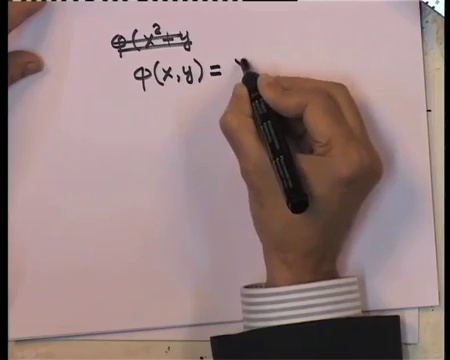 φ(x²+y
φ(x,y) =